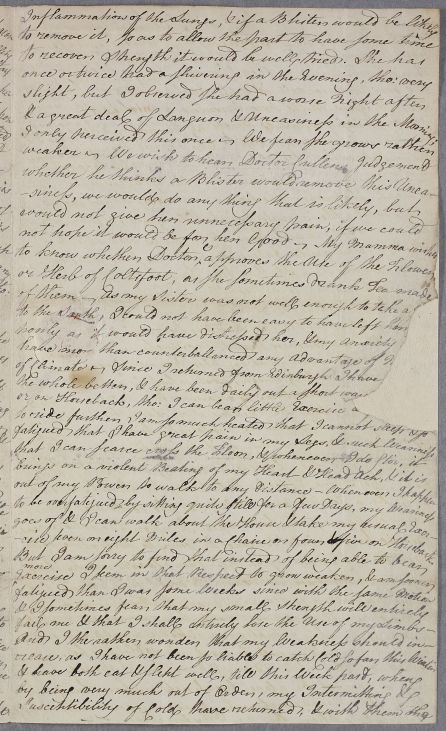 Inflammations of the Lungs, & if a Blister would be likely
to remove it, so as to allow the part to have some time
to recover strength it would be well tried. She has
once or twice had a shivering in the Evening, tho: very
slight, but I observed she had a worse night after
& a great deal of Languor & Uneasiness in the Morning
I only perceived this once. We fear she grows rather
weaker. We wish to hear Doctor Cullens Judgement
whether he thinks a Blister would remove this Unea-
-siness, we would do any thing that is likely, but
would not give her unnecessary pain, if we could
not hope it would be for her Good. My Mamma wishes
to know whether Doctor C approves the Use of the Flower
or Herb of Coltsfoot, as she sometimes drank Tea made
of them. As my Sister was not well enough to take a
to the South, I could not have been easy to have left her
as it would have distressed her, & my anxiety
have more than counterballanced any advantage of
Climate. Since I returned from Edinburgh I have
the whole better, & have been daily out a short way
or on Horseback, tho: I can bear little Exercise
to ride further, I am so much heated that I cannot sleep,
fatigued that I have great pain in my Legs, & such Weariness
that I can scarce the Floor, & whenever I do so, it
brings on a violent Beating of my Heart & Head Ach, & it is
out of my Power to walk to any Distance. Whenever I happen
to be so fatigued, by sitting quite still for a few Days, my Weariness
goes off & I can walk about the House & take my usual Exer-
-cise seven or eight Miles in a chaise or four or five on Horseback
But I am sorry to find that instead of being able to bear
more Exercise I seem in that Respect to grow weaker, & am sooner
fatigued than I was some Weeks since with the same Motion
& I sometimes fear that my small strength will entirely
fail me & that I shall entirely lose the Use of my Limbs
And I the rather wonder that my Weakness should in-
crease, as I have not been so liable to catch Cold so far this Winter
& have both eat & slept well, till this Week past, when
by being very much out of Order, my Intermitting &
Susceptibility of Cold have returned, & with them the